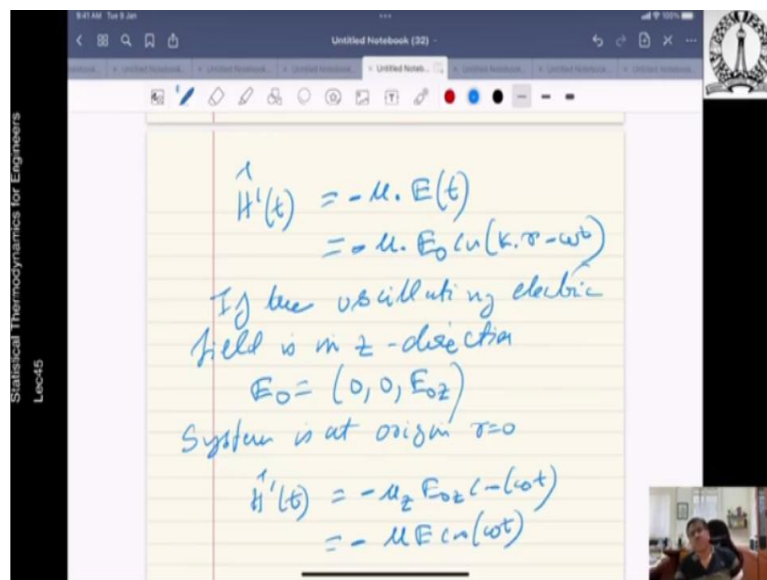 9:41 AM Tue 9 Jan
100%
Untitled Notebook (32)
Untitled Noteb...
Statistical Thermodynamics for Engineers
Lec45
Ĥ'(t) = -μ. E(t)
= -μ. E₀ cos(k.r-ωt)
If the oscillating electric
field is in z-direction
E₀ = (0, 0, E₀z)
System is at origin r=0
Ĥ'(t) = -μz E₀z cos(ωt)
= -μE cos(ωt)